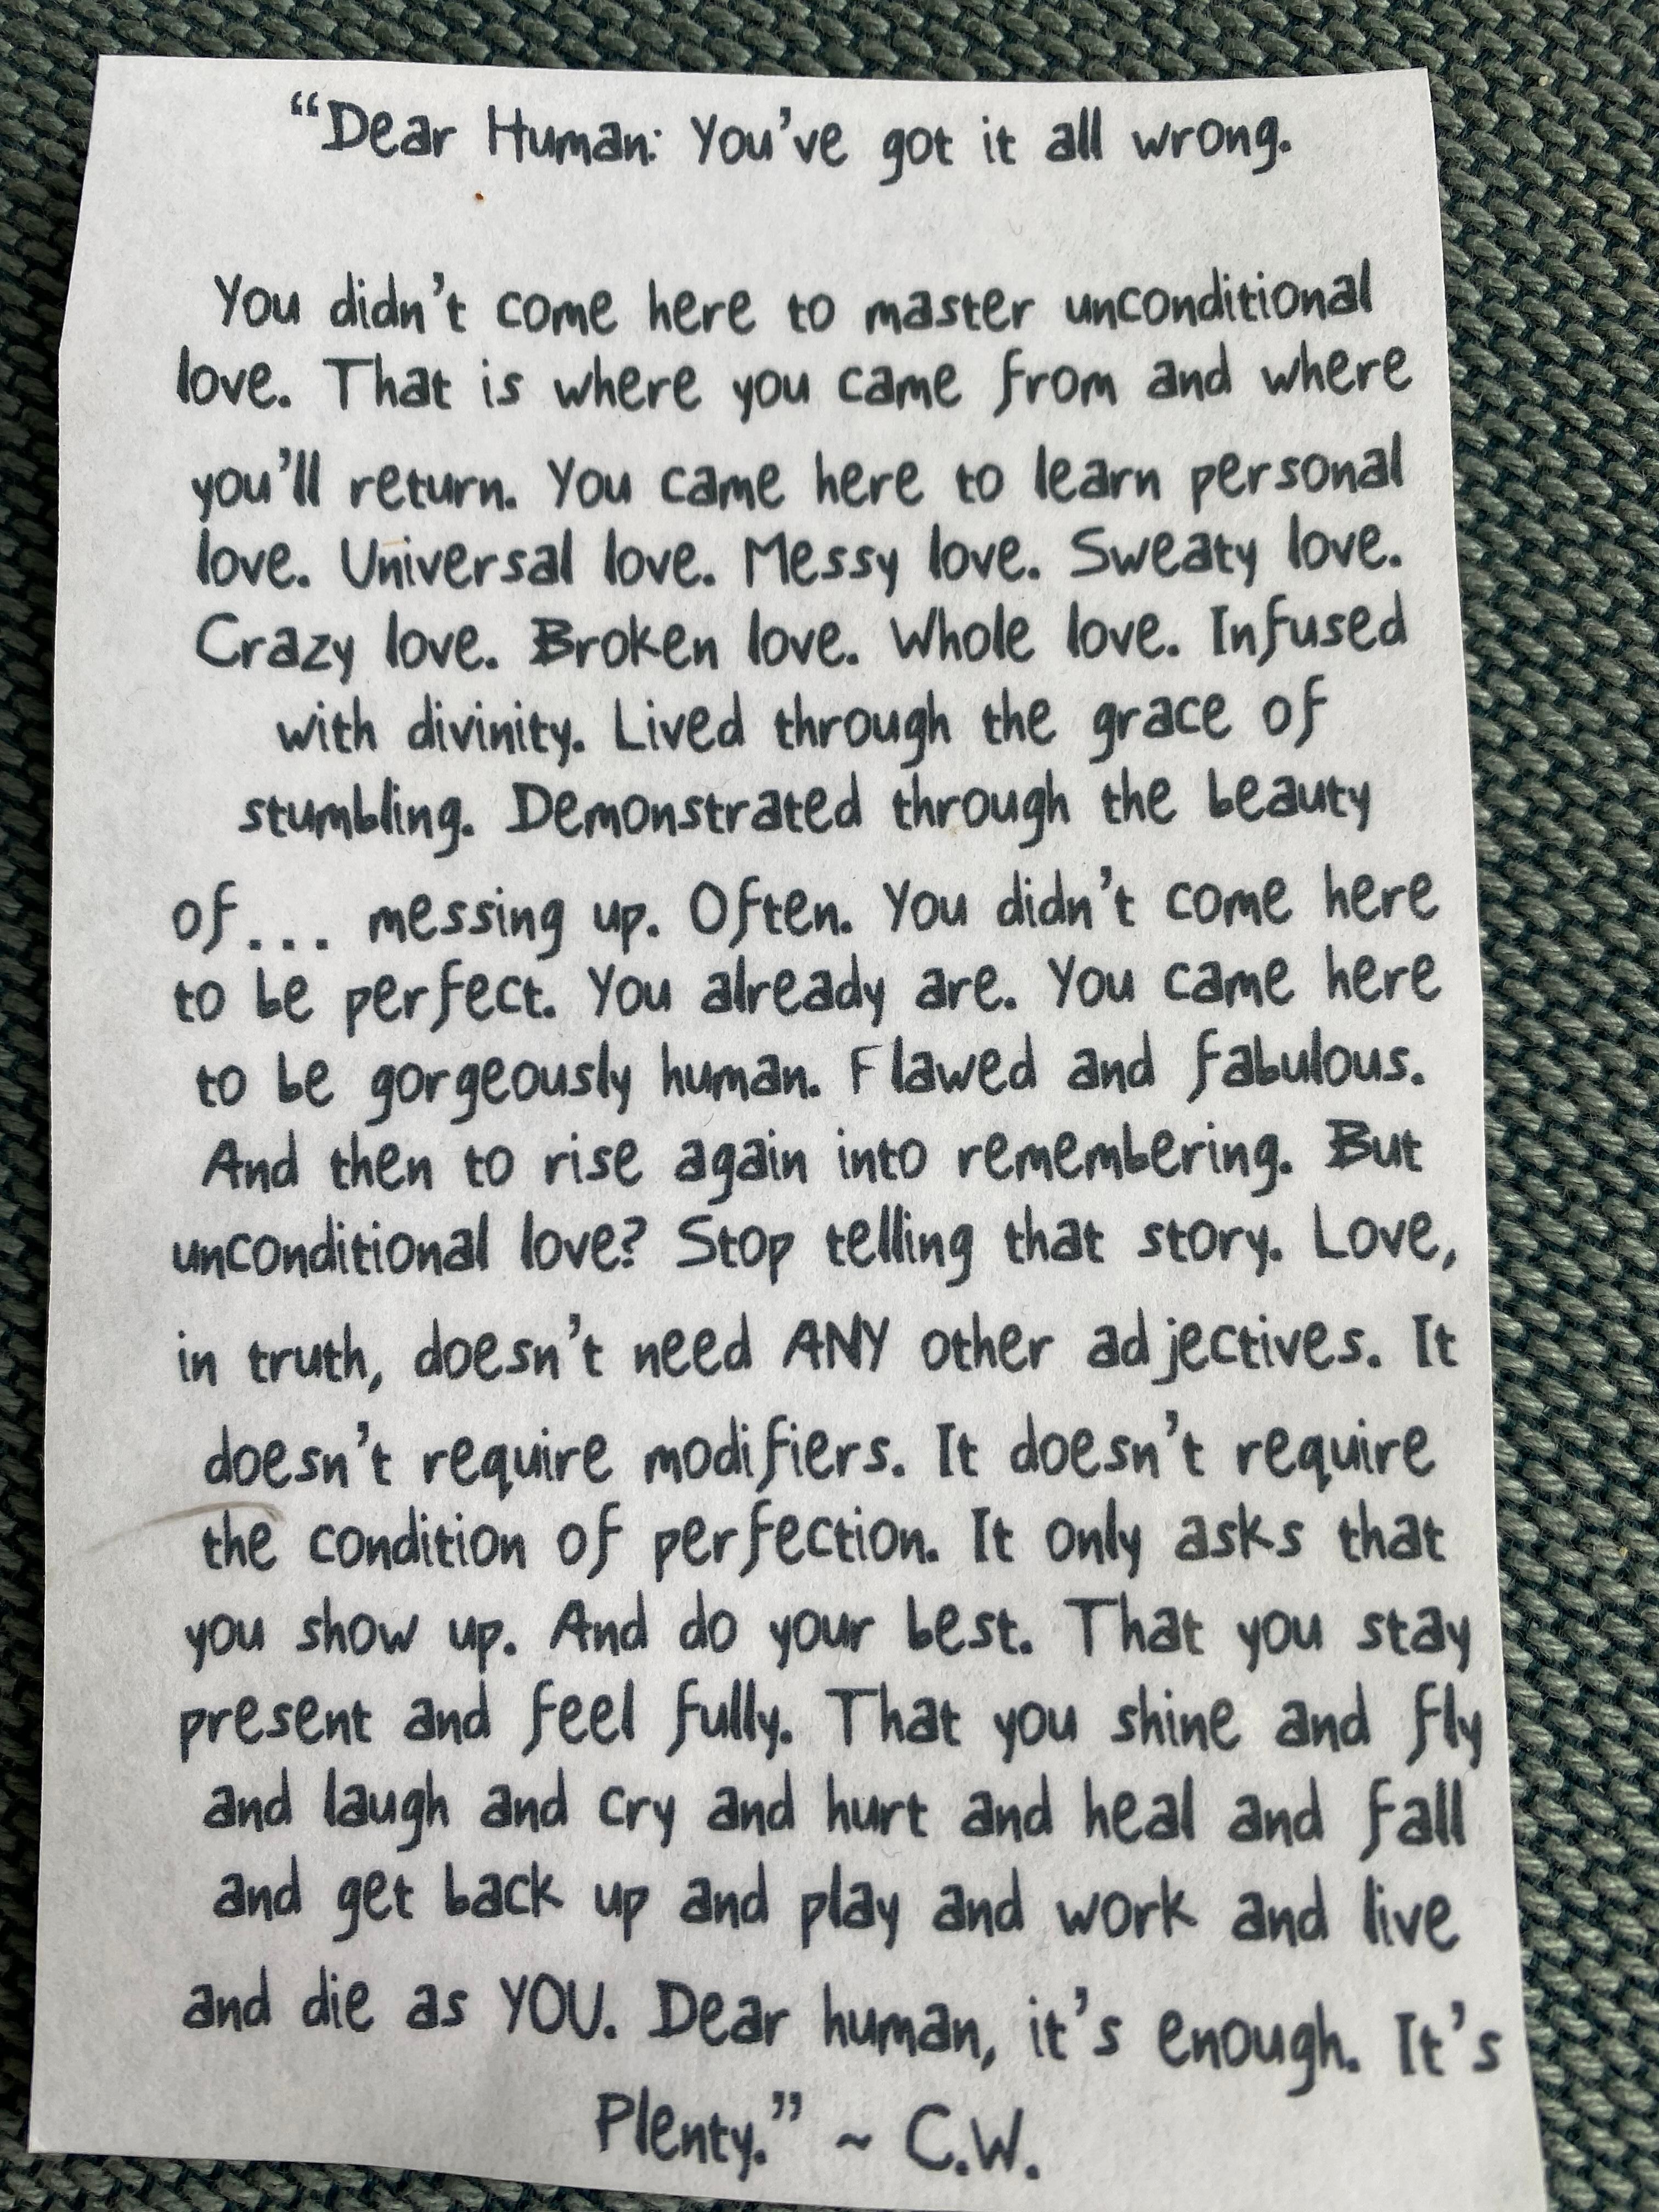 “Dear Human: You’ve got it all wrong.
You didn’t come here to master unconditional
love. That is where you came from and where
you’ll return. You came here to learn personal
love. Universal love. Messy love. Sweaty love.
Crazy love. Broken love. Whole love. Infused
with divinity. Lived through the grace of
stumbling. Demonstrated through the beauty
of... messing up. Often. You didn’t come here
to be perfect. You already are. You came here
to be gorgeously human. Flawed and fabulous.
And then to rise again into remembering. But
unconditional love? Stop telling that story. Love,
in truth, doesn’t need ANY other adjectives. It
doesn’t require modifiers. It doesn’t require
the condition of perfection. It only asks that
you show up. And do your best. That you stay
present and feel fully. That you shine and fly
and laugh and cry and hurt and heal and fall
and get back up and play and work and live
and die as YOU. Dear human, it’s enough. It’s
Plenty.” ~ C.W.